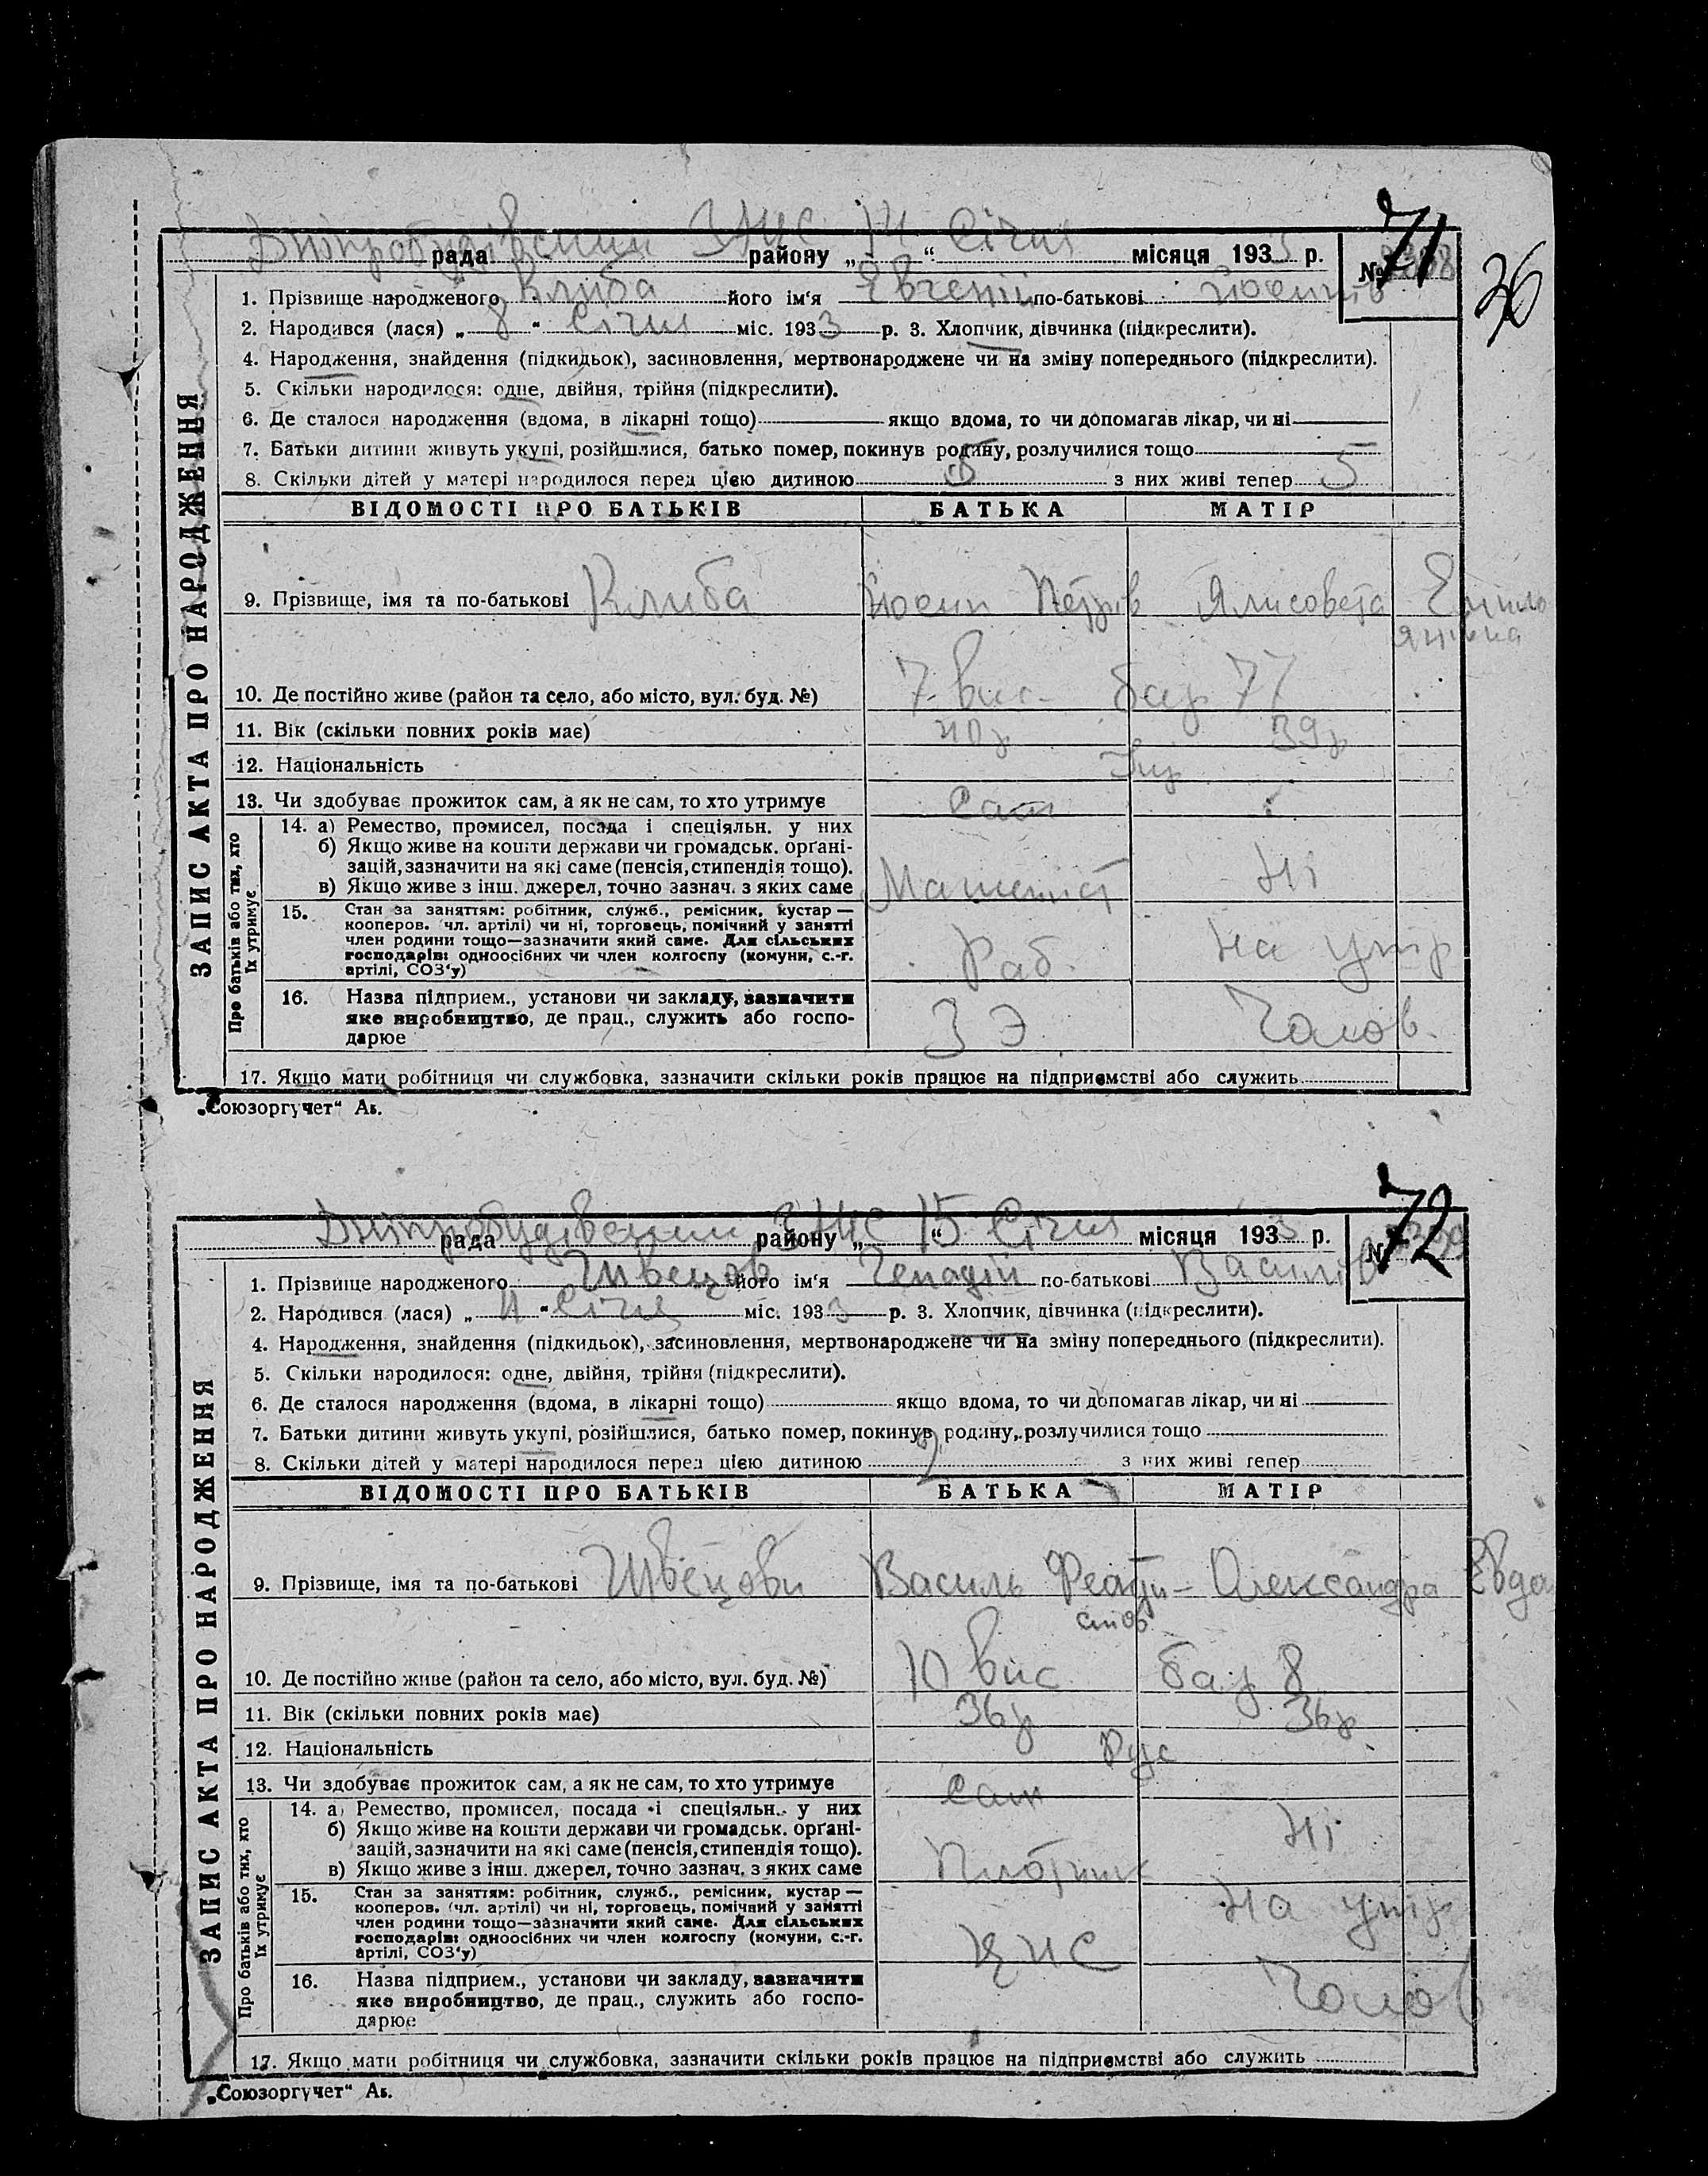 71
36
Дніпробудівський ЗАГС 14 Січня
рада района „ “ місяця 1933 р. №
1. Прізвище народженого Клиба його ім‘я Євгеній по-батькові Йосипів
2. Народився (лася) „ 8 “ Січня міс. 1933 р. 3. Хлопчик, дівчинка (підкреслити).
4. Народження, знайдення (підкидьок), засиновлення, мертвонароджене чи на зміну попереднього (підкреслити).
5. Скільки народилося: одне, двійня, трійня (підкреслити).
6. Де сталося народження (вдома, в лікарні тощо) якщо вдома, то чи допомагав лікар, чи ні
7. Батьки дитини живуть укупі, розійшлися, батько помер, покинув родину, розлучилися тощо
8. Скільки дітей у матері народилося перед цією дитиною з них живі тепер 5
ВІДОМОСТІ ПРО БАТЬКІВ БАТЬКА МАТІР
9. Прізвище, імя та по-батькові Клиба Йосип Петрів Ялисовета
10. Де постійно живе (район та село, або місто, вул. буд. №) 7 вис. бар 77
11. Вік (скільки повних років має) 40р 39р
12. Національність
13. Чи здобуває прожиток сам, а як не сам, то хто утримує Сам
14. а) Ремество, промисел, посада і спеціяльн. у них
б) Якщо живе на кошти держави чи громадськ. орґані-
зацій, зазначити на які саме (пенсія, стипендія тощо).
в) Якщо живе з інш. джерел, точно зазнач. з яких саме Машиніст Ні
15. Стан за заняттям: робітник, служб., ремісник, кустар —
кооперов. (чл. артілі) чи ні, торговець, помічний у занятті
член родини тощо—зазначити який саме. Для сільських
господарів: одноосібних чи член колгоспу (комуни, с.-г.
артілі, СОЗ‘у) Раб. На утр
16. Назва підприєм., установи чи закладу, зазначити
яке виробництво, де прац., служить або госпо-
дарює ЗЭ Чолов.
17. Якщо мати робітниця чи службовка, зазначити скільки років працює на підприємстві або служить
ЗАПИС АКТА ПРО НАРОДЖЕННЯ
Про батьків або тих, хто
їх утримує
„Союзоргучет“ Аг.
72
Дніпробудівський ЗАГС 15 Січня
рада району „ “ місяця 1933 р. №
1. Прізвище народженого Швецов його ім‘я Генадій по-батькові Василів
2. Народився (лася) „ 11 “ Січня міс. 1933 р. 3. Хлопчик, дівчинка (підкреслити).
4. Народження, знайдення (підкидьок), засиновлення, мертвонароджене чи на зміну попереднього (підкреслити).
5. Скільки народилося: одне, двійня, трійня (підкреслити).
6. Де сталося народження (вдома, в лікарні тощо) якщо вдома, то чи допомагав лікар, чи ні
7. Батьки дитини живуть укупі, розійшлися, батько помер, покинув родину, розлучилися тощо
8. Скільки дітей у матері народилося перед цією дитиною 2 з них живі тепер
ВІДОМОСТІ ПРО БАТЬКІВ БАТЬКА МАТІР
9. Прізвище, імя та по-батькові Швецови Василь Олександра Евдо
10. Де постійно живе (район та село, або місто, вул. буд. №) 10 вис бар 8
11. Вік (скільки повних років має) 36р 36р
12. Національність Рус
13. Чи здобуває прожиток сам, а як не сам, то хто утримує Сам
14. а) Ремество, промисел, посада і спеціяльн. у них
б) Якщо живе на кошти держави чи громадськ. орґані-
зацій, зазначити на які саме (пенсія, стипендія тощо).
в) Якщо живе з інш. джерел, точно зазнач. з яких саме Плотник Ні
15. Стан за заняттям: робітник, служб., ремісник, кустар —
кооперов. (чл. артілі) чи ні, торговець, помічний у занятті
член родини тощо—зазначити який саме. Для сільських
господарів: одноосібних чи член колгоспу (комуни, с.-г.
артілі, СОЗ‘у) На утр
16. Назва підприєм., установи чи закладу, зазначити
яке виробництво, де прац., служить або госпо-
дарює Чолов
17. Якщо мати робітниця чи службовка, зазначити скільки років працює на підприємстві або служить
ЗАПИС АКТА ПРО НАРОДЖЕННЯ
Про батьків або тих, хто
їх утримує
„Союзоргучет“ Аг.